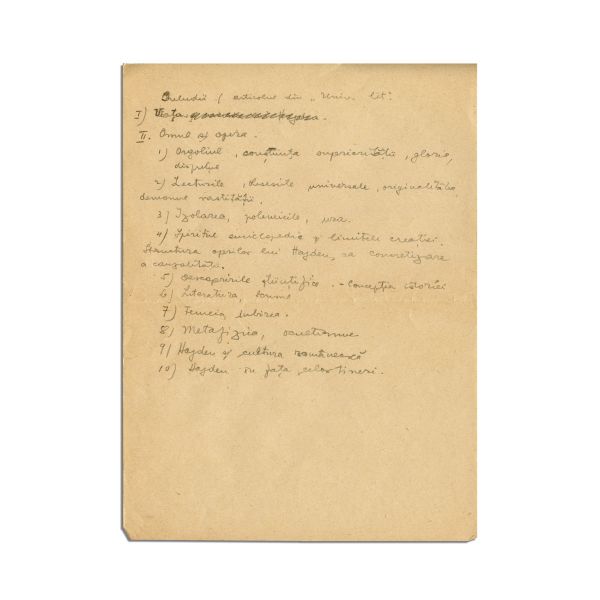 Preludii / articolul din "Univ. lit."
I) Viața
II. Omul și opera.
1) Orgoliul, conștiința superiorității, gloria,
disprețul
2) Lecturile, obsesiile universale, originalitatea,
demonul vastității.
3) Izolarea, polemicile, ura.
4) Spiritul enciclopedic și limitele creației.
Structura operilor lui Hajdeu, ca concretizare
a cauzalității.
5) Descoperirile științifice. - Concepția istoriei
6) Literatura,
7) Femeia, iubirea.
8) Metafizica, ocultismul
9) Hajdeu și cultura românească
10) Hajdeu în fața celor tineri.